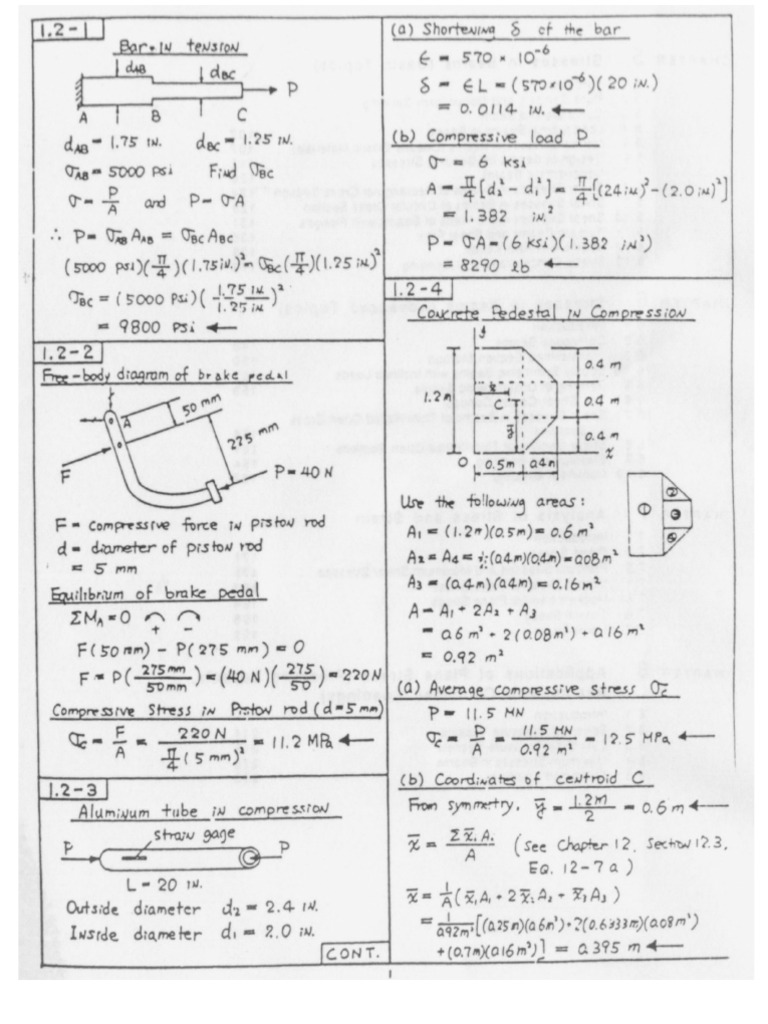 1.2-1
Bar in tension
dAB dBC P
A B C
dAB = 1.75 in. dBC = 1.25 in.
σAB = 5000 psi Find σBC
σ = P/A and P = σA
∴ P = σAB AAB = σBC ABC
(5000 psi)(π/4)(1.75 in.)² = σBC(π/4)(1.25 in.)²
σBC = (5000 psi)(1.75 in./1.25 in.)²
= 9800 psi ←
1.2-2
Free-body diagram of brake pedal
A 50 mm
275 mm
F P = 40 N
F = compressive force in piston rod
d = diameter of piston rod
= 5 mm
Equilibrium of brake pedal
ΣMA = 0
+ -
F(50 mm) - P(275 mm) = 0
F = P(275 mm/50 mm) = (40 N)(275/50) = 220 N
Compressive stress in piston rod (d = 5 mm)
σc = F/A = 220 N / π/4 (5 mm)² = 11.2 MPa ←
1.2-3
Aluminum tube in compression
strain gage
P P
L = 20 in.
Outside diameter d2 = 2.4 in.
Inside diameter d1 = 2.0 in.
CONT.
(a) Shortening δ of the bar
ϵ = 570 × 10⁻⁶
δ = ϵL = (570×10⁻⁶)(20 in.)
= 0.0114 in. ←
(b) Compressive load P
σ = 6 ksi
A = π/4 [d2² - d1²] = π/4 [(2.4 in.)² - (2.0 in.)²]
= 1.382 in.²
P = σA = (6 ksi)(1.382 in²)
= 8290 lb ←
1.2-4
Concrete Pedestal in Compression
y
0.4 m
1.2 m x̄ 0.4 m
C
ȳ 0.4 m
O 0.5 m 0.4 m x
Use the following areas:
① ② ③ ④
A1 = (1.2 m)(0.5 m) = 0.6 m²
A2 = A4 = ½(0.4 m)(0.4 m) = 0.08 m²
A3 = (0.4 m)(0.4 m) = 0.16 m²
A = A1 + 2A2 + A3
= 0.6 m² + 2(0.08 m²) + 0.16 m²
= 0.92 m²
(a) Average compressive stress σc
P = 11.5 MN
σc = P/A = 11.5 MN/0.92 m² = 12.5 MPa ←
(b) Coordinates of centroid C
From symmetry, ȳ = 1.2 m/2 = 0.6 m ←
x̄ = Σx̄iAi/A (See Chapter 12, Section 12.3,
Eq. 12-7a)
x̄ = 1/A (x̄1A1 + 2x̄2A2 + x̄3A3)
= 1/0.92 m² [(0.25 m)(0.6 m²) + 2(0.6333 m)(0.08 m²)
+ (0.7 m)(0.16 m²)] = 0.395 m ←
1